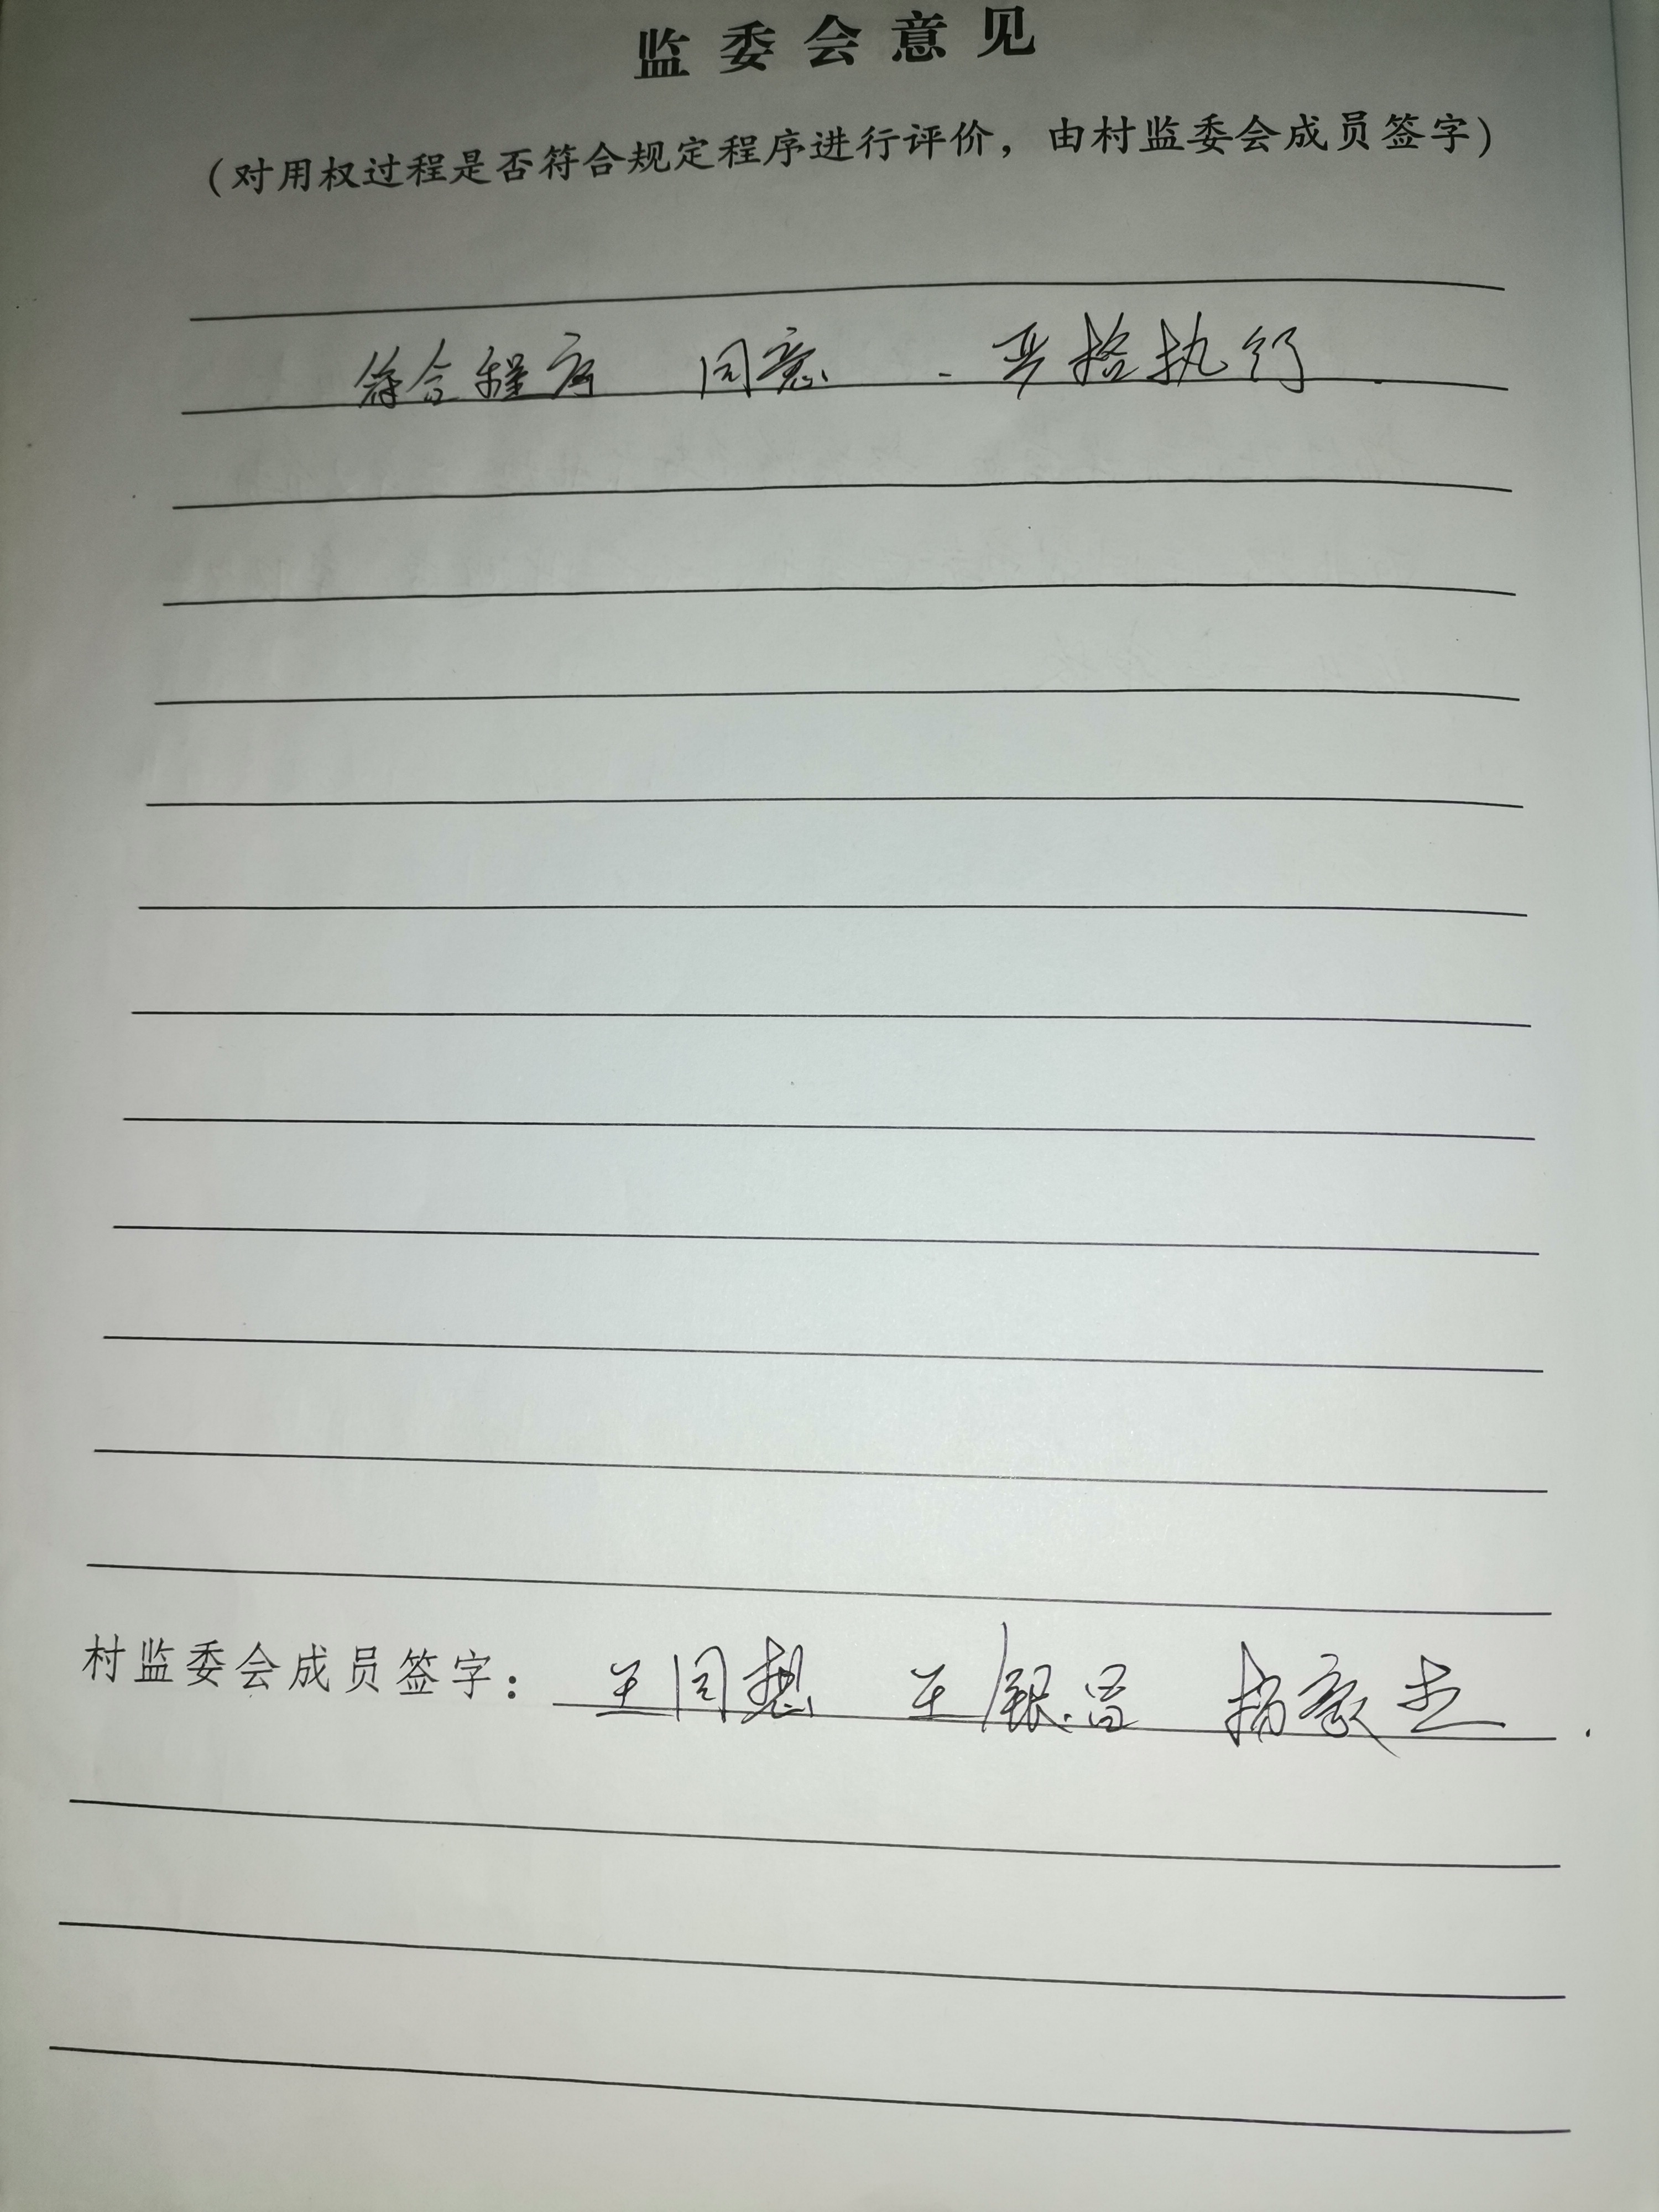 监委会意见
（对用权过程是否符合规定程序进行评价，由村监委会成员签字）
符合程序 同意 . 严格执行 .
村监委会成员签字： 王同想 王银昌 杨豪杰 .